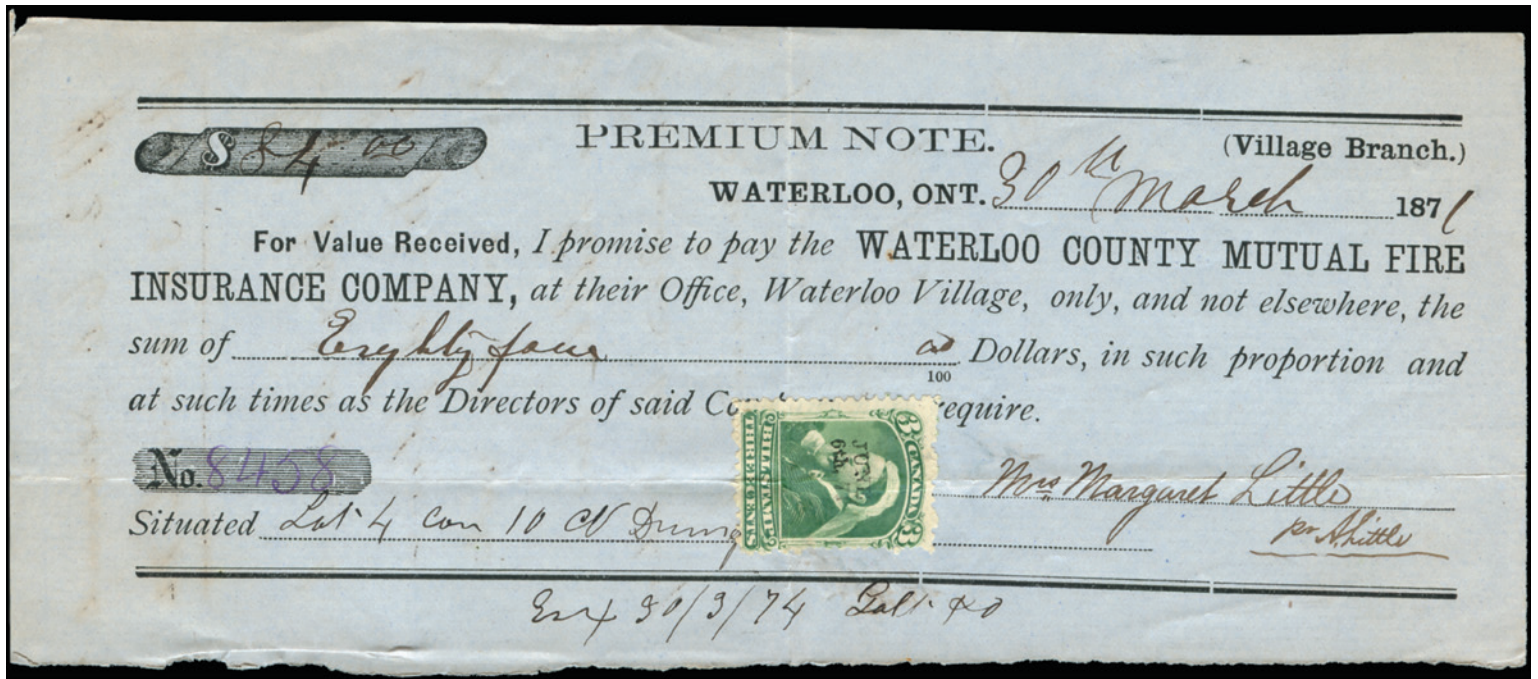 $ 84 00
PREMIUM NOTE.
(Village Branch.)
WATERLOO, ONT. 30th March 1871
For Value Received, I promise to pay the WATERLOO COUNTY MUTUAL FIRE
INSURANCE COMPANY, at their Office, Waterloo Village, only, and not elsewhere, the
sum of Eighty four 00/100 Dollars, in such proportion and
at such times as the Directors of said Co equire.
No. 8458
Mrs Margaret Little
Situated Lot 4 con 10 N
pr A Little
30/3/74 Galt PO
3 CANADA 3
BILL STAMP
THREE CENTS
JUN.